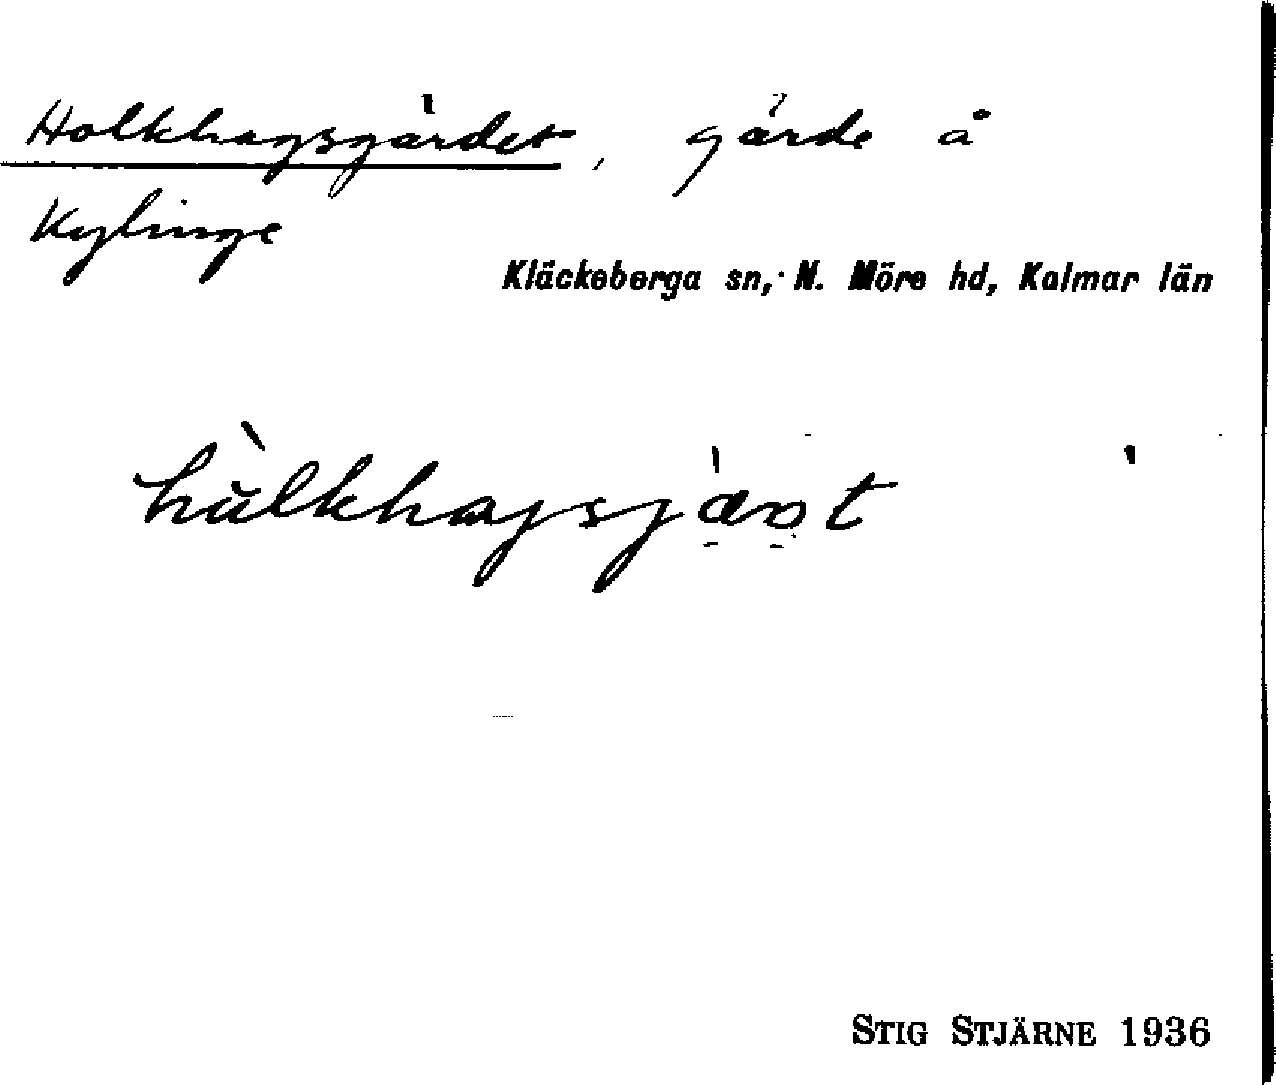 Holkhagsgärdet, gärde å
Kylinge
Kläckeberga sn, N. Möre hd, Kalmar län
STIG STJÄRNE 1936